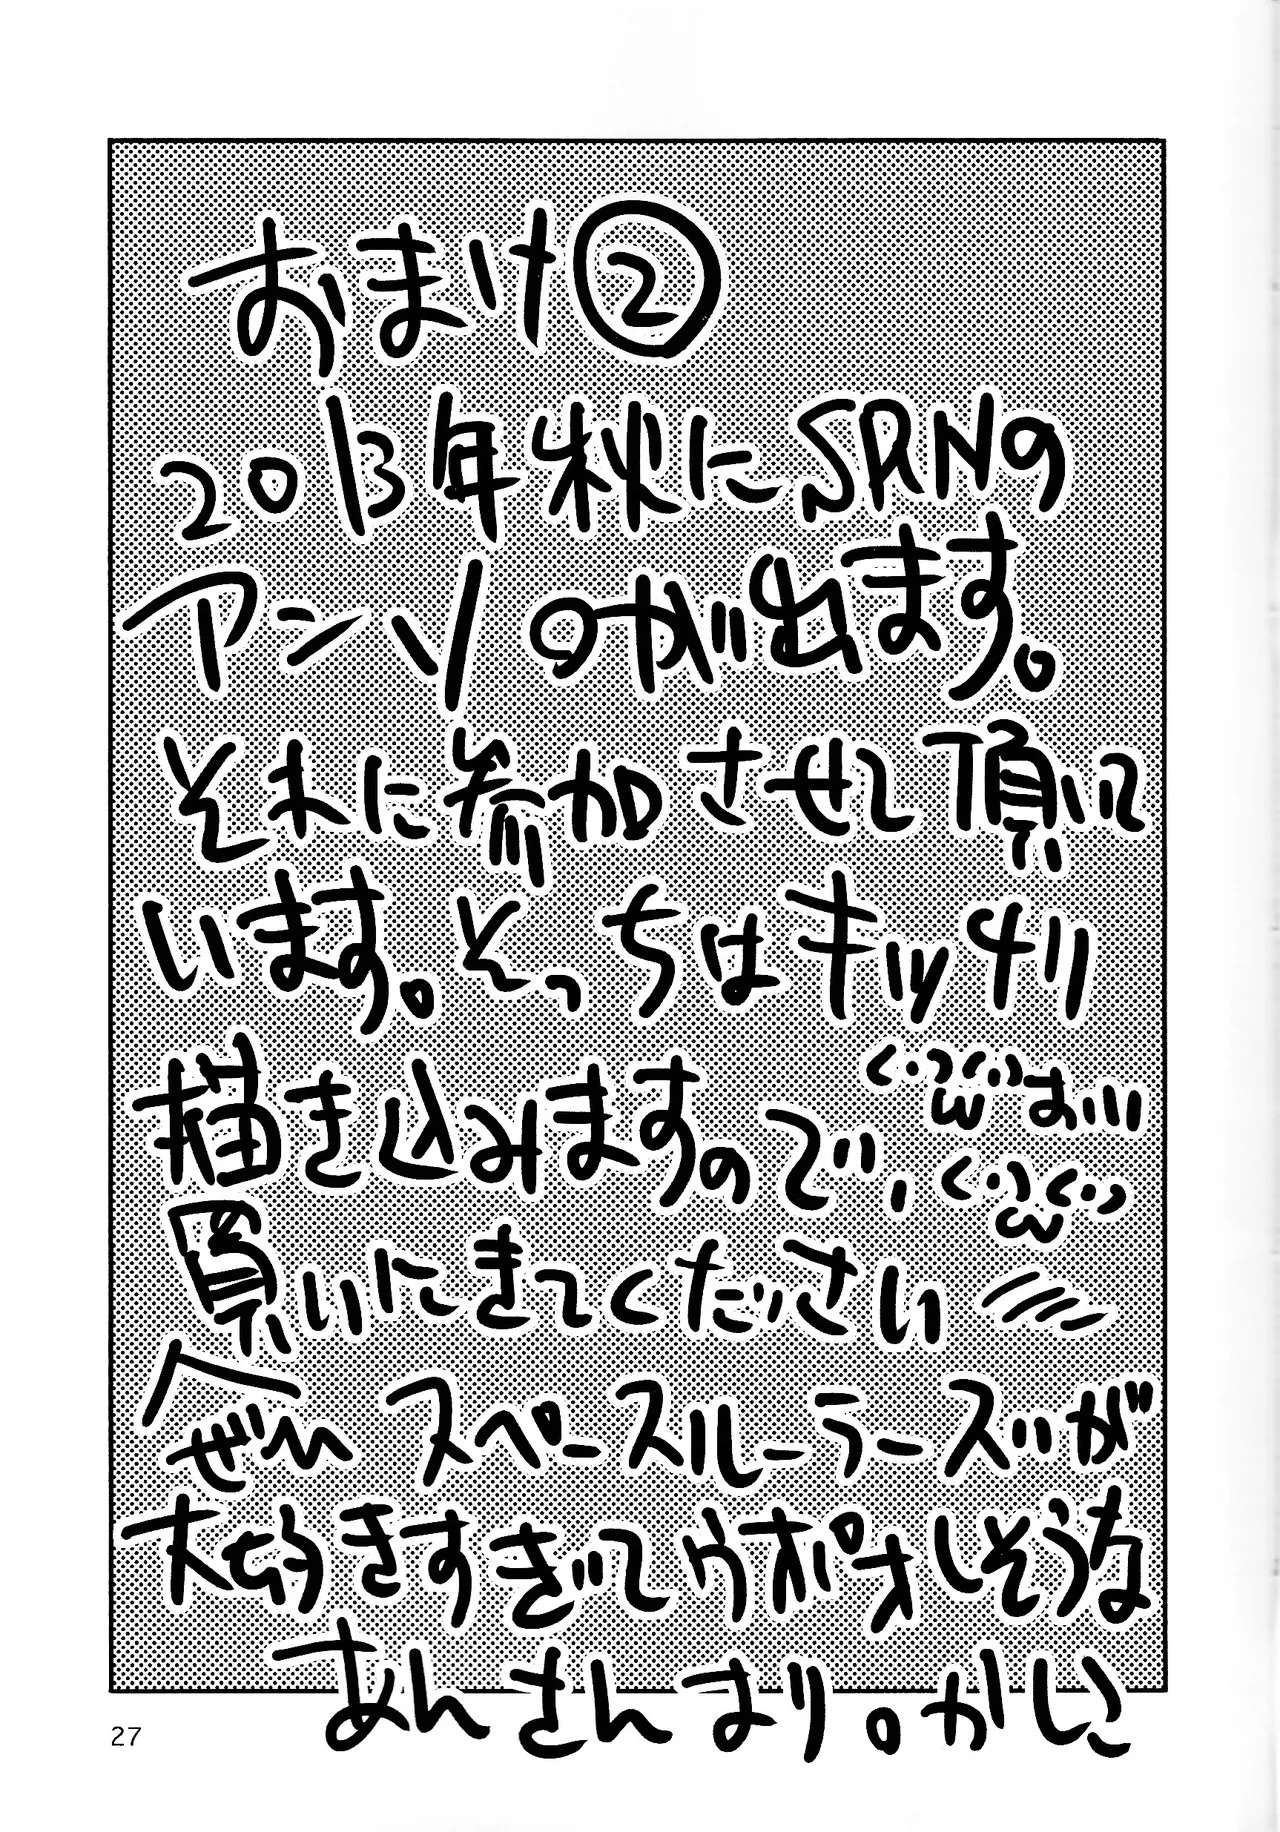 おまけ②
2013年秋にSRNの
アンソのが出ます。
それに参加させて頂いて
います。そっちはキッチリ
描き込みますので、
買いにきてください
ぜひ スペースルーラーズが
大好きすぎてウポオしそうな
あんさんより。かしこ
27